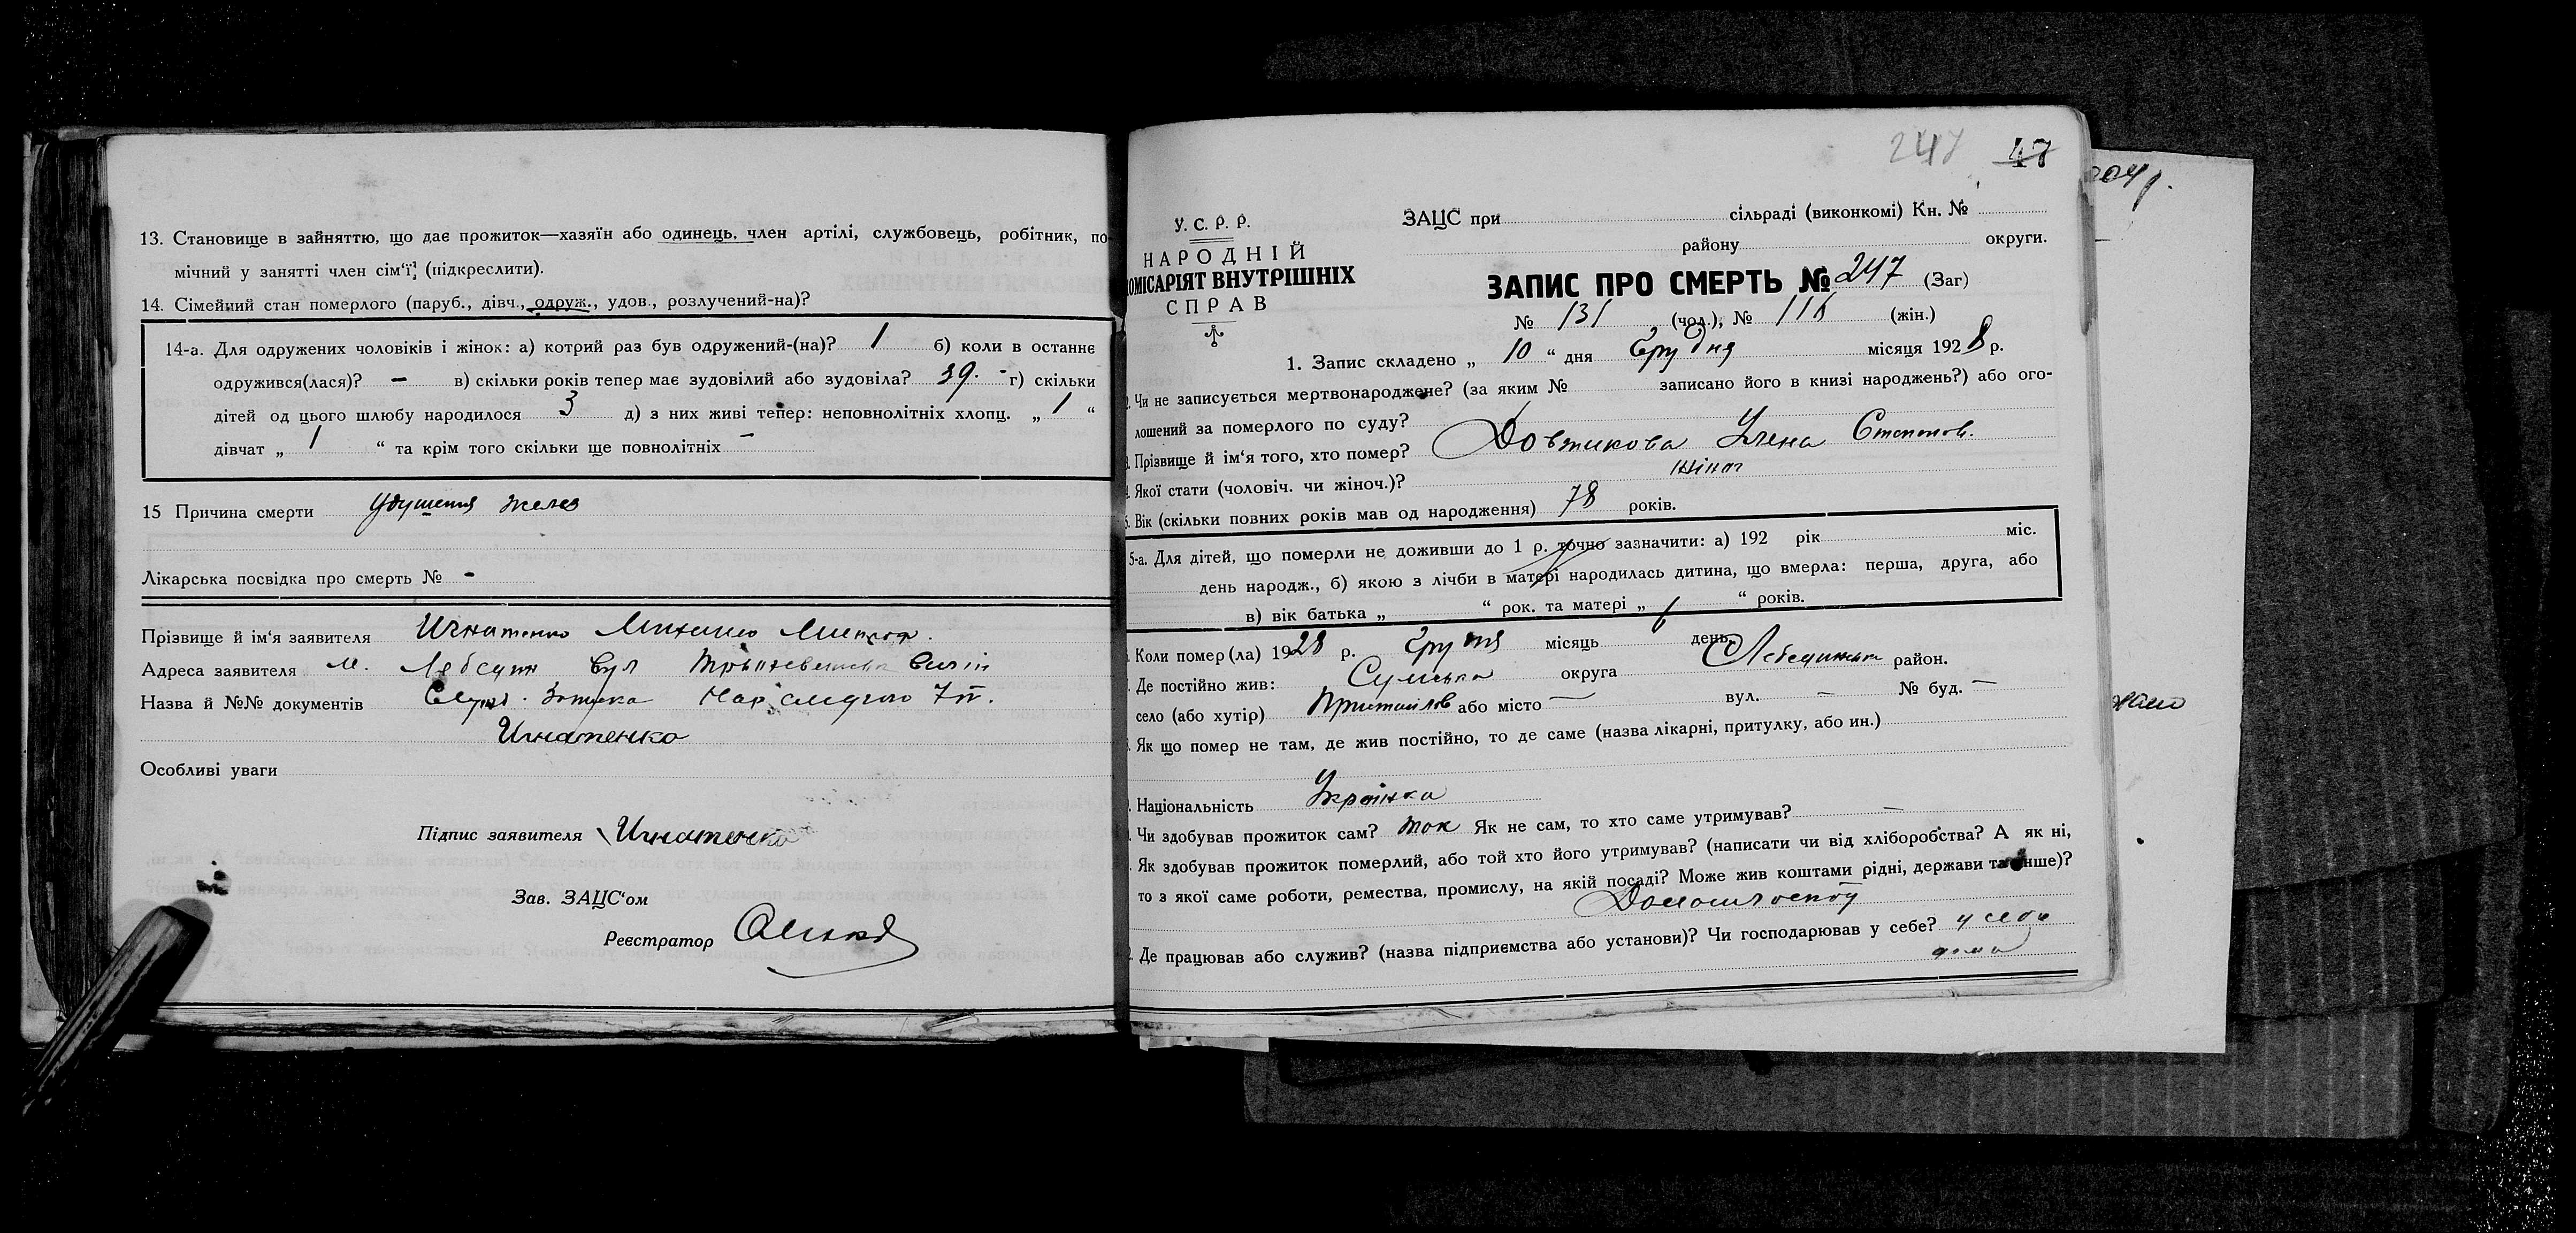 13. Становище в зайняттю, що дає прожиток—хазяїн або одинець, член артілі, службовець, робітник, по
мічний у занятті член сім'ї (підкреслити).
14. Сімейний стан померлого (паруб., дівч., одруж., удов., розлучений-на)?
14-а. Для одружених чоловіків і жінок: а) котрий раз був одружений-(на)? 1 б) коли в останнє
одружився(лася)? – в) скільки років тепер має зудовілий або зудовіла? 39. г) скільки
дітей од цього шлюбу народилося 3 д) з них живі тепер: неповнолітніх хлопц. „ 1 “
дівчат „ 1 “ та крім того скільки ще повнолітніх –
15 Причина смерти
Лікарська посвідка про смерть № -
Прізвище й ім'я заявителя Игнатенко Михайло
Адреса заявителя м. вул
Назва й №№ документів
Игнатенко
Особливі уваги
Підпис заявителя Игнатенко
Зав. ЗАЦС'ом
Реєстратор
247 47
У. С. Р. Р.
НАРОДНІЙ
КОМІСАРІЯТ ВНУТРІШНІХ
СПРАВ
ЗАЦС при сільраді (виконкомі) Кн. №
району округи.
ЗАПИС ПРО СМЕРТЬ № 247 (Заг)
№ 131 (чол.), № 116 (жін.)
1. Запис складено „ 10 “ дня Грудня місяця 1928 р.
Чи не записується мертвонароджене? (за яким № записано його в книзі народжень?) або ого-
лошений за померлого по суду?
Прізвище й ім'я того, хто помер? Довжикова Улена Степанов.
Якої стати (чоловіч. чи жіноч.)? жіноч
Вік (скільки повних років мав од народження) 78 років.
5-а. Для дітей, що померли не доживши до 1 р. точно зазначити: а) 192 рік міс.
день народж., б) якою з лічби в матері народилась дитина, що вмерла: перша, друга, або
в) вік батька „ “ рок. та матері „ “ років.
Коли помер(ла) 1928 р. Грудня місяць 6 день
Де постійно жив: Сумська округа Лебединськ район.
село (або хутір) Пристайлов або місто — вул. — № буд. —
Як що помер не там, де жив постійно, то де саме (назва лікарні, притулку, або ин.)
Національність Українка
Чи здобував прожиток сам? так Як не сам, то хто саме утримував? —
Як здобував прожиток померлий, або той хто його утримував? (написати чи від хліборобства? А як ні,
то з якої саме роботи, ремества, промислу, на якій посаді? Може жив коштами рідні, держави та інше)?
Домашгоспод
Де працював або служив? (назва підприємства або установи)? Чи господарював у себе? у себя
дома